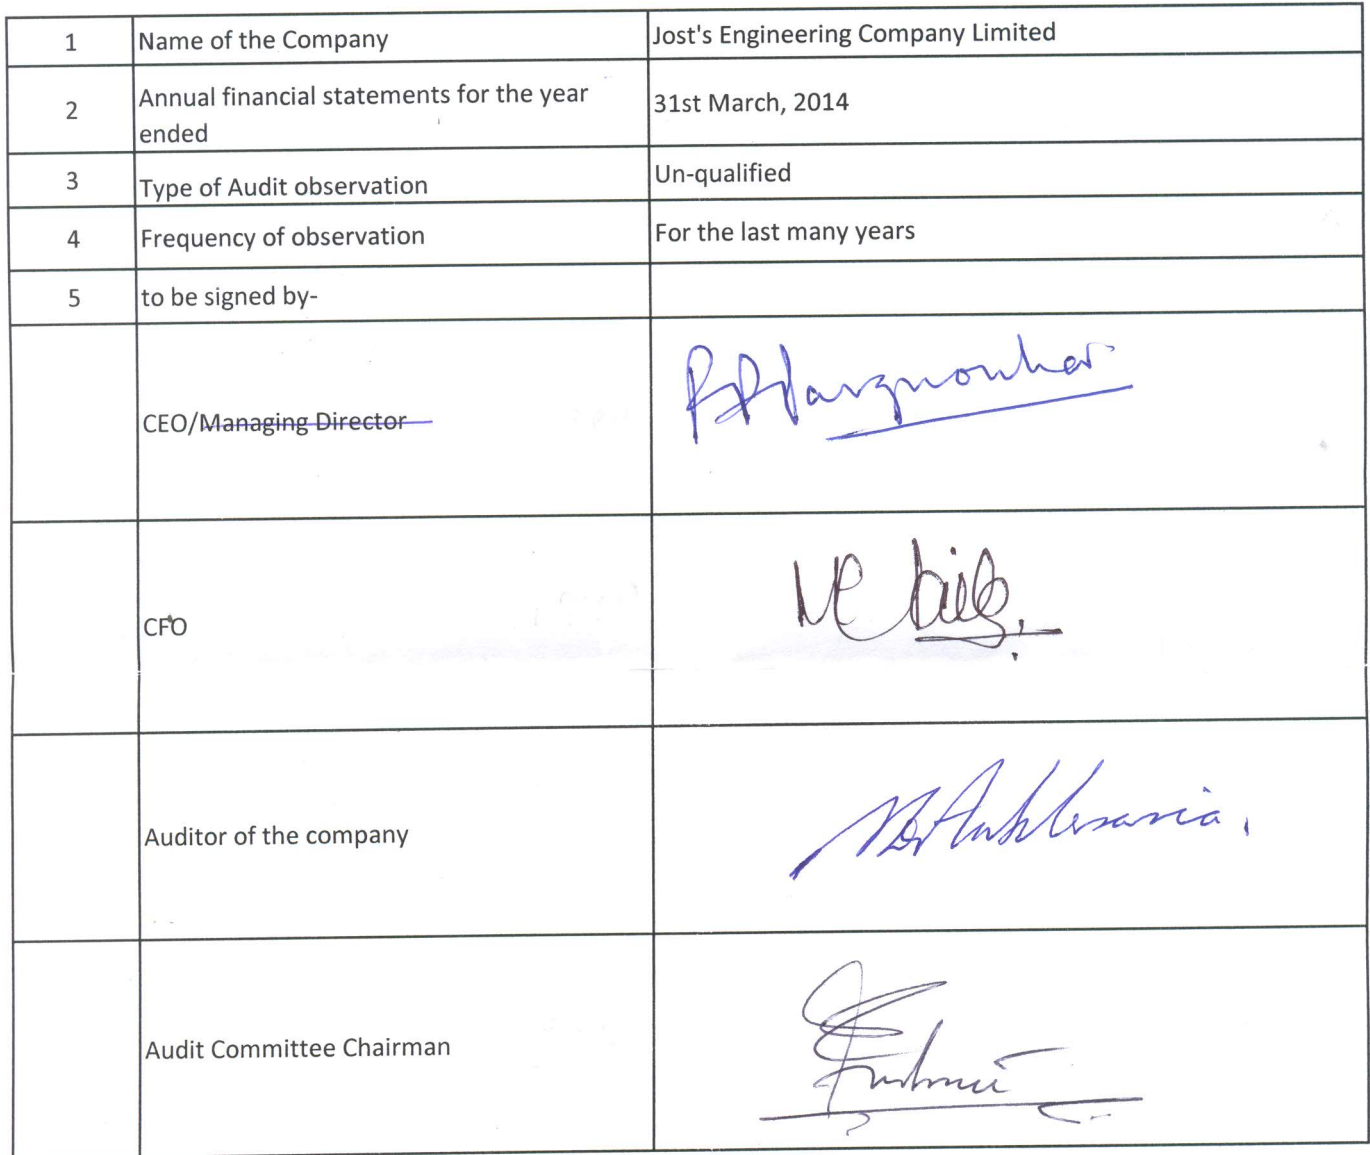 1 Name of the Company Jost's Engineering Company Limited
2 Annual financial statements for the year
ended 31st March, 2014
3 Type of Audit observation Un-qualified
4 Frequency of observation For the last many years
5 to be signed by-
CEO/Managing Director
CFO
Auditor of the company
Audit Committee Chairman